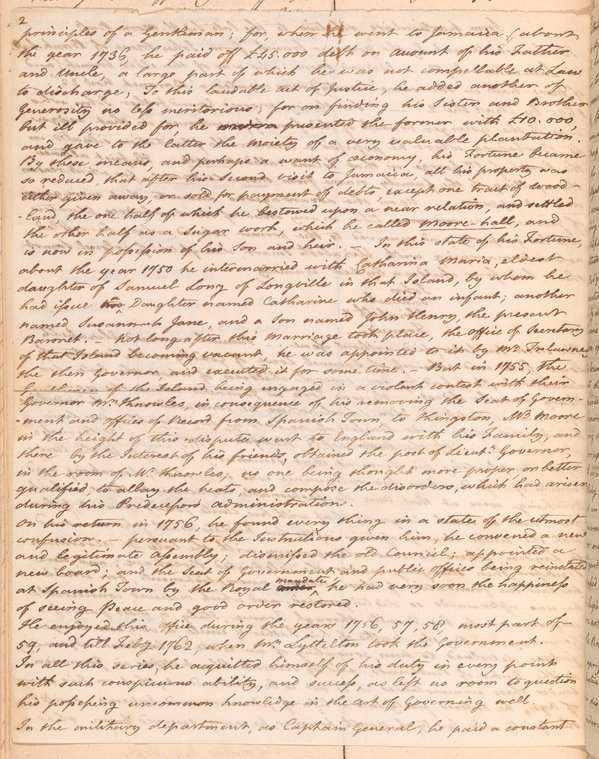 2
principles of a Gentleman; for, when he went to Jamaica (about
the year 1736, he paid off £45.000 debt on account of his Father
and Uncle, a large part of which he was not compellable at Law
to discharge; To this laudable act of Justice, he added another of
Generosity no less meritorious; for on finding his Sister and Brother
but ill provided for, he presented the former with £10.000,
and gave to the latter the moiety of a very valuable plantation.
By these means, and perhaps a want of œconomy, his Fortune became
so reduced, that after his second visit to Jamaica, all his property was
either given away, or sold for payment of debts except one tract of wood-
-land, the one half of which he bestowed upon a near relation, and settled
the other half as a Sugar work, which he called Moore-hall, and
is now in possession of his Son and heir. — In this state of his Fortune,
about the year 1750 he intermarried with Catharina Maria, eldest
daughter of Samuel Long of Longville in that Island, by whom he
had issue Daughter named Catharine who died an infant; another
named Susannah Jane, and a Son named John Henry, the present
Baronet. — Not long after this Marriage took place, the office of Secretary
of that Island becoming vacant, he was appointed to it by Mr. Trelawney
the then Governor, and executed it for some time. — But in 1755, the
of the Island being engaged in a violent contest with their
Governor Mr. Knowles, in consequence of his removing the Seat of Govern-
-ment and offices of Record from Spanish Town to Kingston, Mr. Moore
in the height of this dispute went to England with his Family, and
there by the Interest of his friends, obtained the post of Lieut. Governor,
in the room of Mr. Knowles, no one being thought more proper or better
qualified, to allay the heats, and compose the disorders, which had arisen
during his Predecessors administration.
On his return in 1756, he found every thing in a state of the utmost
confusion. — pursuant to the Instructions given him, he convened a new
and legitimate Assembly; dismissed the old Council; appointed a
new board; and the Seat of Government and public offices being reinstated
at Spanish Town by the Royal mandate, he had very soon the happiness
of seeing Peace and good order restored.
He enjoyed this office during the years 1756, 57, 58, most part of
59, and till Feby. 1762, when Mr. Lyttelton took the Government.
In all this series, he acquitted himself of his duty in every point
with such conspicuous ability, and success, as left no room to question
his possessing uncommon knowledge in the art of Governing well.
In the military department, as Captain General, he paid a constant